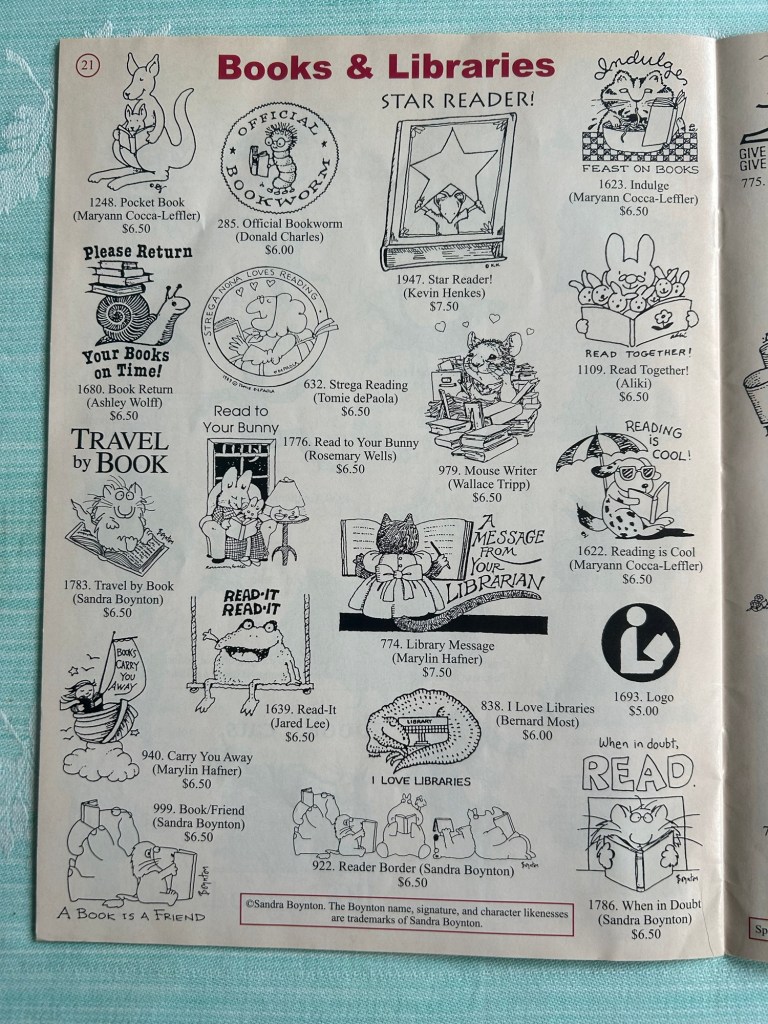 21
Books & Libraries
1248. Pocket Book
(Maryann Cocca-Leffler)
$6.50
OFFICIAL
BOOKWORM
285. Official Bookworm
(Donald Charles)
$6.00
STAR READER!
1947. Star Reader!
(Kevin Henkes)
$7.50
Indulge
FEAST ON BOOKS
1623. Indulge
(Maryann Cocca-Leffler)
$6.50
Please Return
Your Books
on Time!
1680. Book Return
(Ashley Wolff)
$6.50
STREGA NONA LOVES READING
632. Strega Reading
(Tomie dePaola)
$6.50
979. Mouse Writer
(Wallace Tripp)
$6.50
READ TOGETHER!
1109. Read Together!
(Aliki)
$6.50
TRAVEL
by BOOK
Boynton
1783. Travel by Book
(Sandra Boynton)
$6.50
Read to
Your Bunny
1776. Read to Your Bunny
(Rosemary Wells)
$6.50
A
MESSAGE
FROM
YOUR
LIBRARIAN
774. Library Message
(Marylin Hafner)
$7.50
READING
is
COOL!
1622. Reading is Cool
(Maryann Cocca-Leffler)
$6.50
BOOKS
CARRY
YOU
AWAY
940. Carry You Away
(Marylin Hafner)
$6.50
READ-IT
READ-IT
1639. Read-It
(Jared Lee)
$6.50
LIBRARY
I LOVE LIBRARIES
838. I Love Libraries
(Bernard Most)
$6.00
1693. Logo
$5.00
999. Book/Friend
(Sandra Boynton)
$6.50
Boynton
A BOOK IS A FRIEND
922. Reader Border (Sandra Boynton)
$6.50
When in doubt,
READ.
Boynton
1786. When in Doubt
(Sandra Boynton)
$6.50
©Sandra Boynton. The Boynton name, signature, and character likenesses
are trademarks of Sandra Boynton.
GIVE
GIVE
775.
Sp